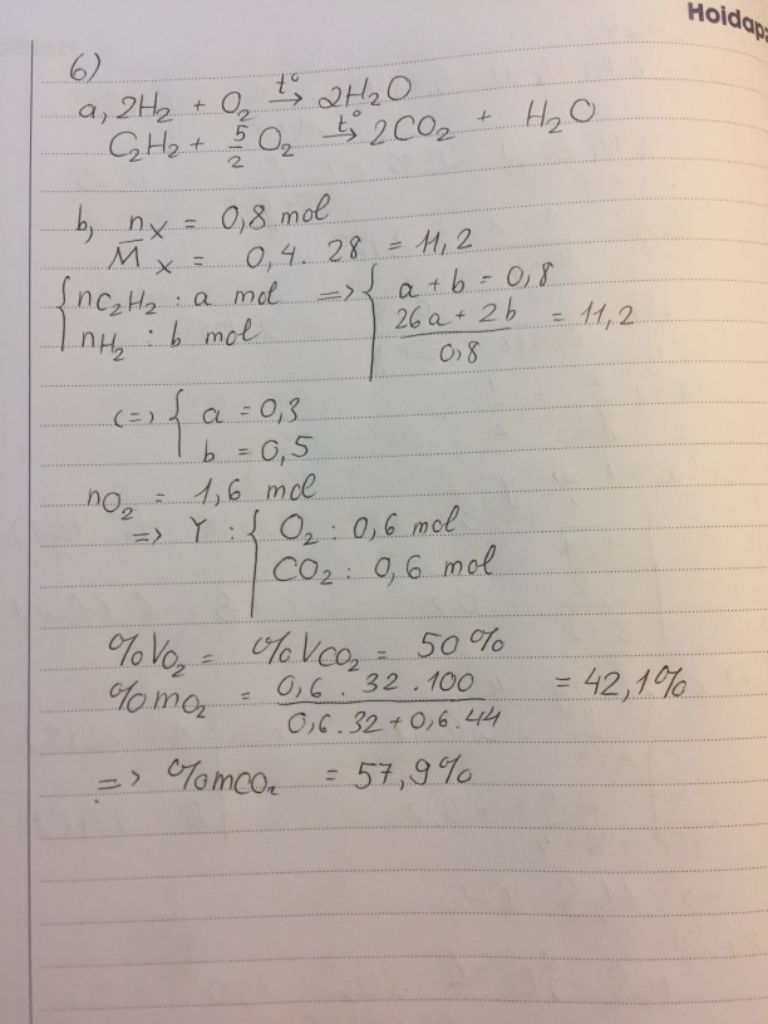 Hoidap
6)
a, 2H₂ + O₂ →(t°) 2H₂O
C₂H₂ + 5/2 O₂ →(t°) 2CO₂ + H₂O
b, nₓ = 0,8 mol
M̅ₓ = 0,4 . 28 = 11,2
{ nC₂H₂ : a mol => { a + b = 0,8
nH₂ : b mol (26a + 2b)/0,8 = 11,2
(=) { a = 0,3
b = 0,5
nO₂ = 1,6 mol
=> Y : { O₂ : 0,6 mol
CO₂ : 0,6 mol
%VO₂ = %VCO₂ = 50%
%mO₂ = (0,6 . 32 . 100)/(0,6 . 32 + 0,6 . 44) = 42,1%
=> %mCO₂ = 57,9%